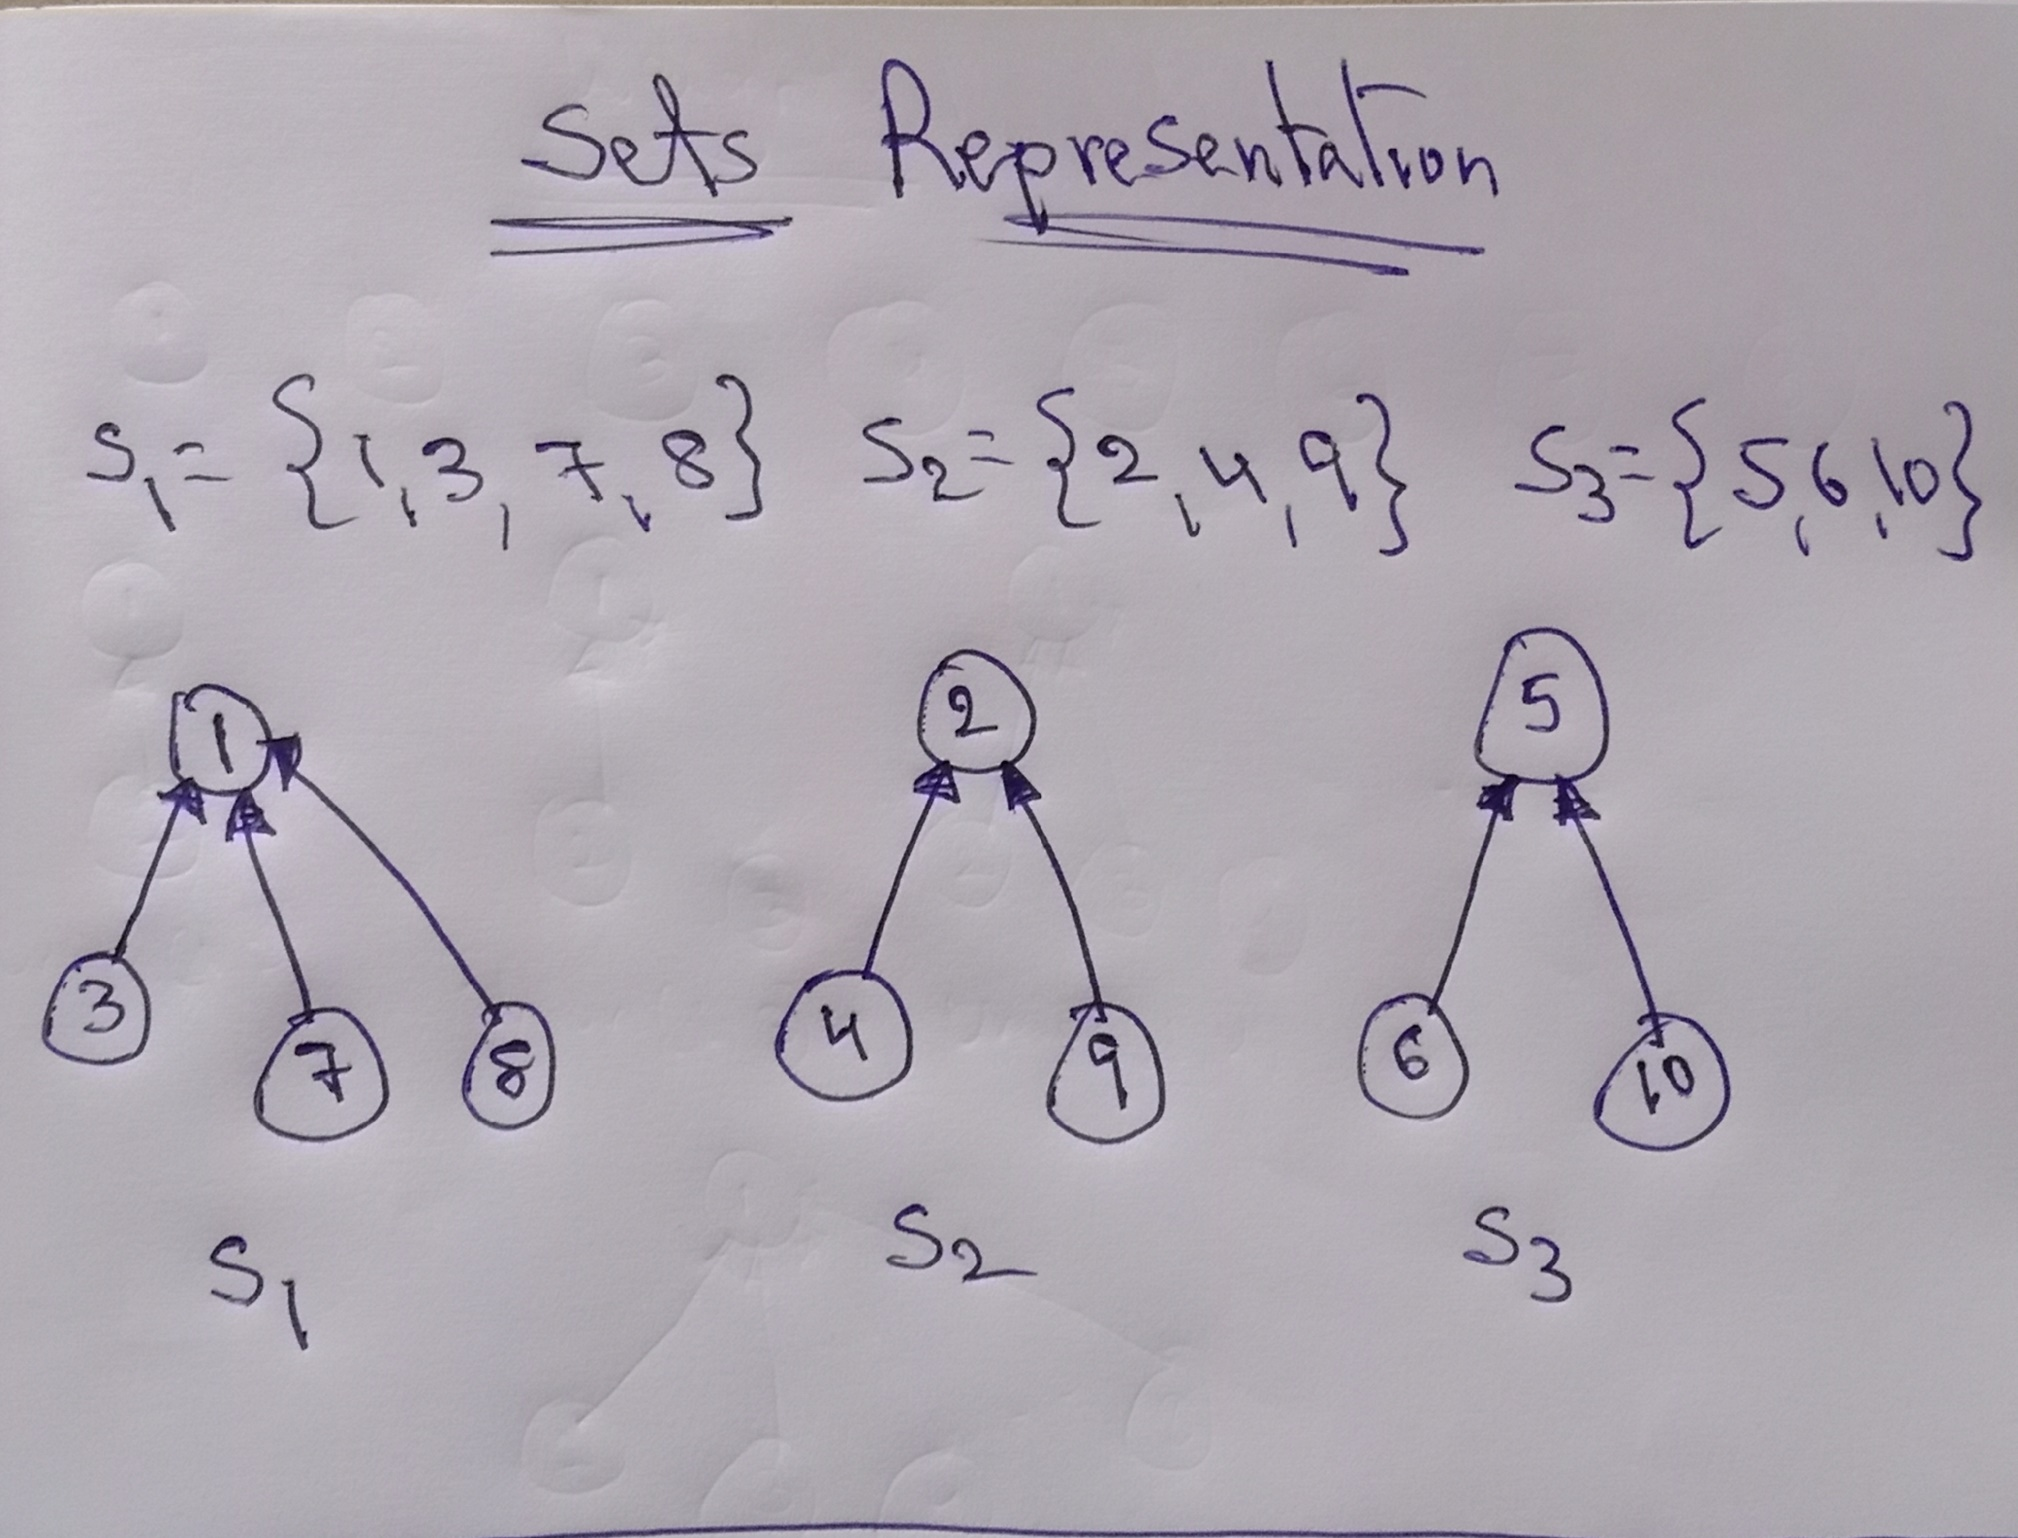 Sets Representation
S₁= {1,3,7,8} S₂= {2,4,9} S₃= {5,6,10}
1 2 5
3 7 8 4 9 6 10
S₁ S₂ S₃